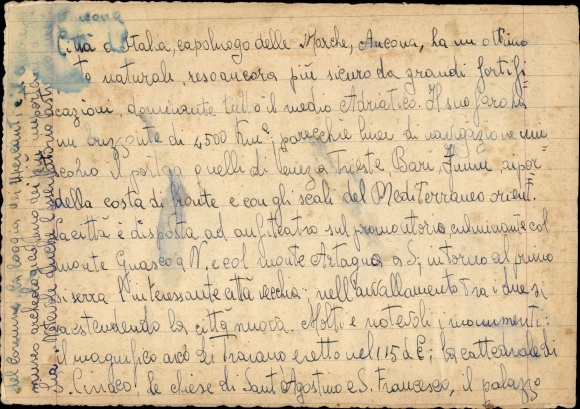 Ancona
Città d'Italia, capoluogo delle Marche, Ancona, ha un ottimo por=
to naturale, reso ancora più sicuro da grandi fortifi=
cazioni, dominante tutto il medio Adriatico. Il suo faro ha
un orizzonte di 4500 Km²; parecchie linee di navigazione
il porto a quelli di Venezia Trieste, Bari, Fiume, ai por=
della costa di fronte e con gli scali del Mediterraneo orient.
La città è disposta ad anfiteatro sul promontorio, culminante col
monte Guasco a N. e col monte Artagno a S; intorno al primo
si serra l'interessante città vecchia: nell'avvallamento tra i due si
va estendendo la città nuova. Molti e notevoli i monumenti:
il magnifico arco di Traiano eretto nel 115 d C; la cattedrale di
S. Ciriaco, le chiese di Sant'Agostino e S. Francesco, il palazzo
del Comune, la loggia dei Mercanti e il
museo archeologico, uno dei più importa